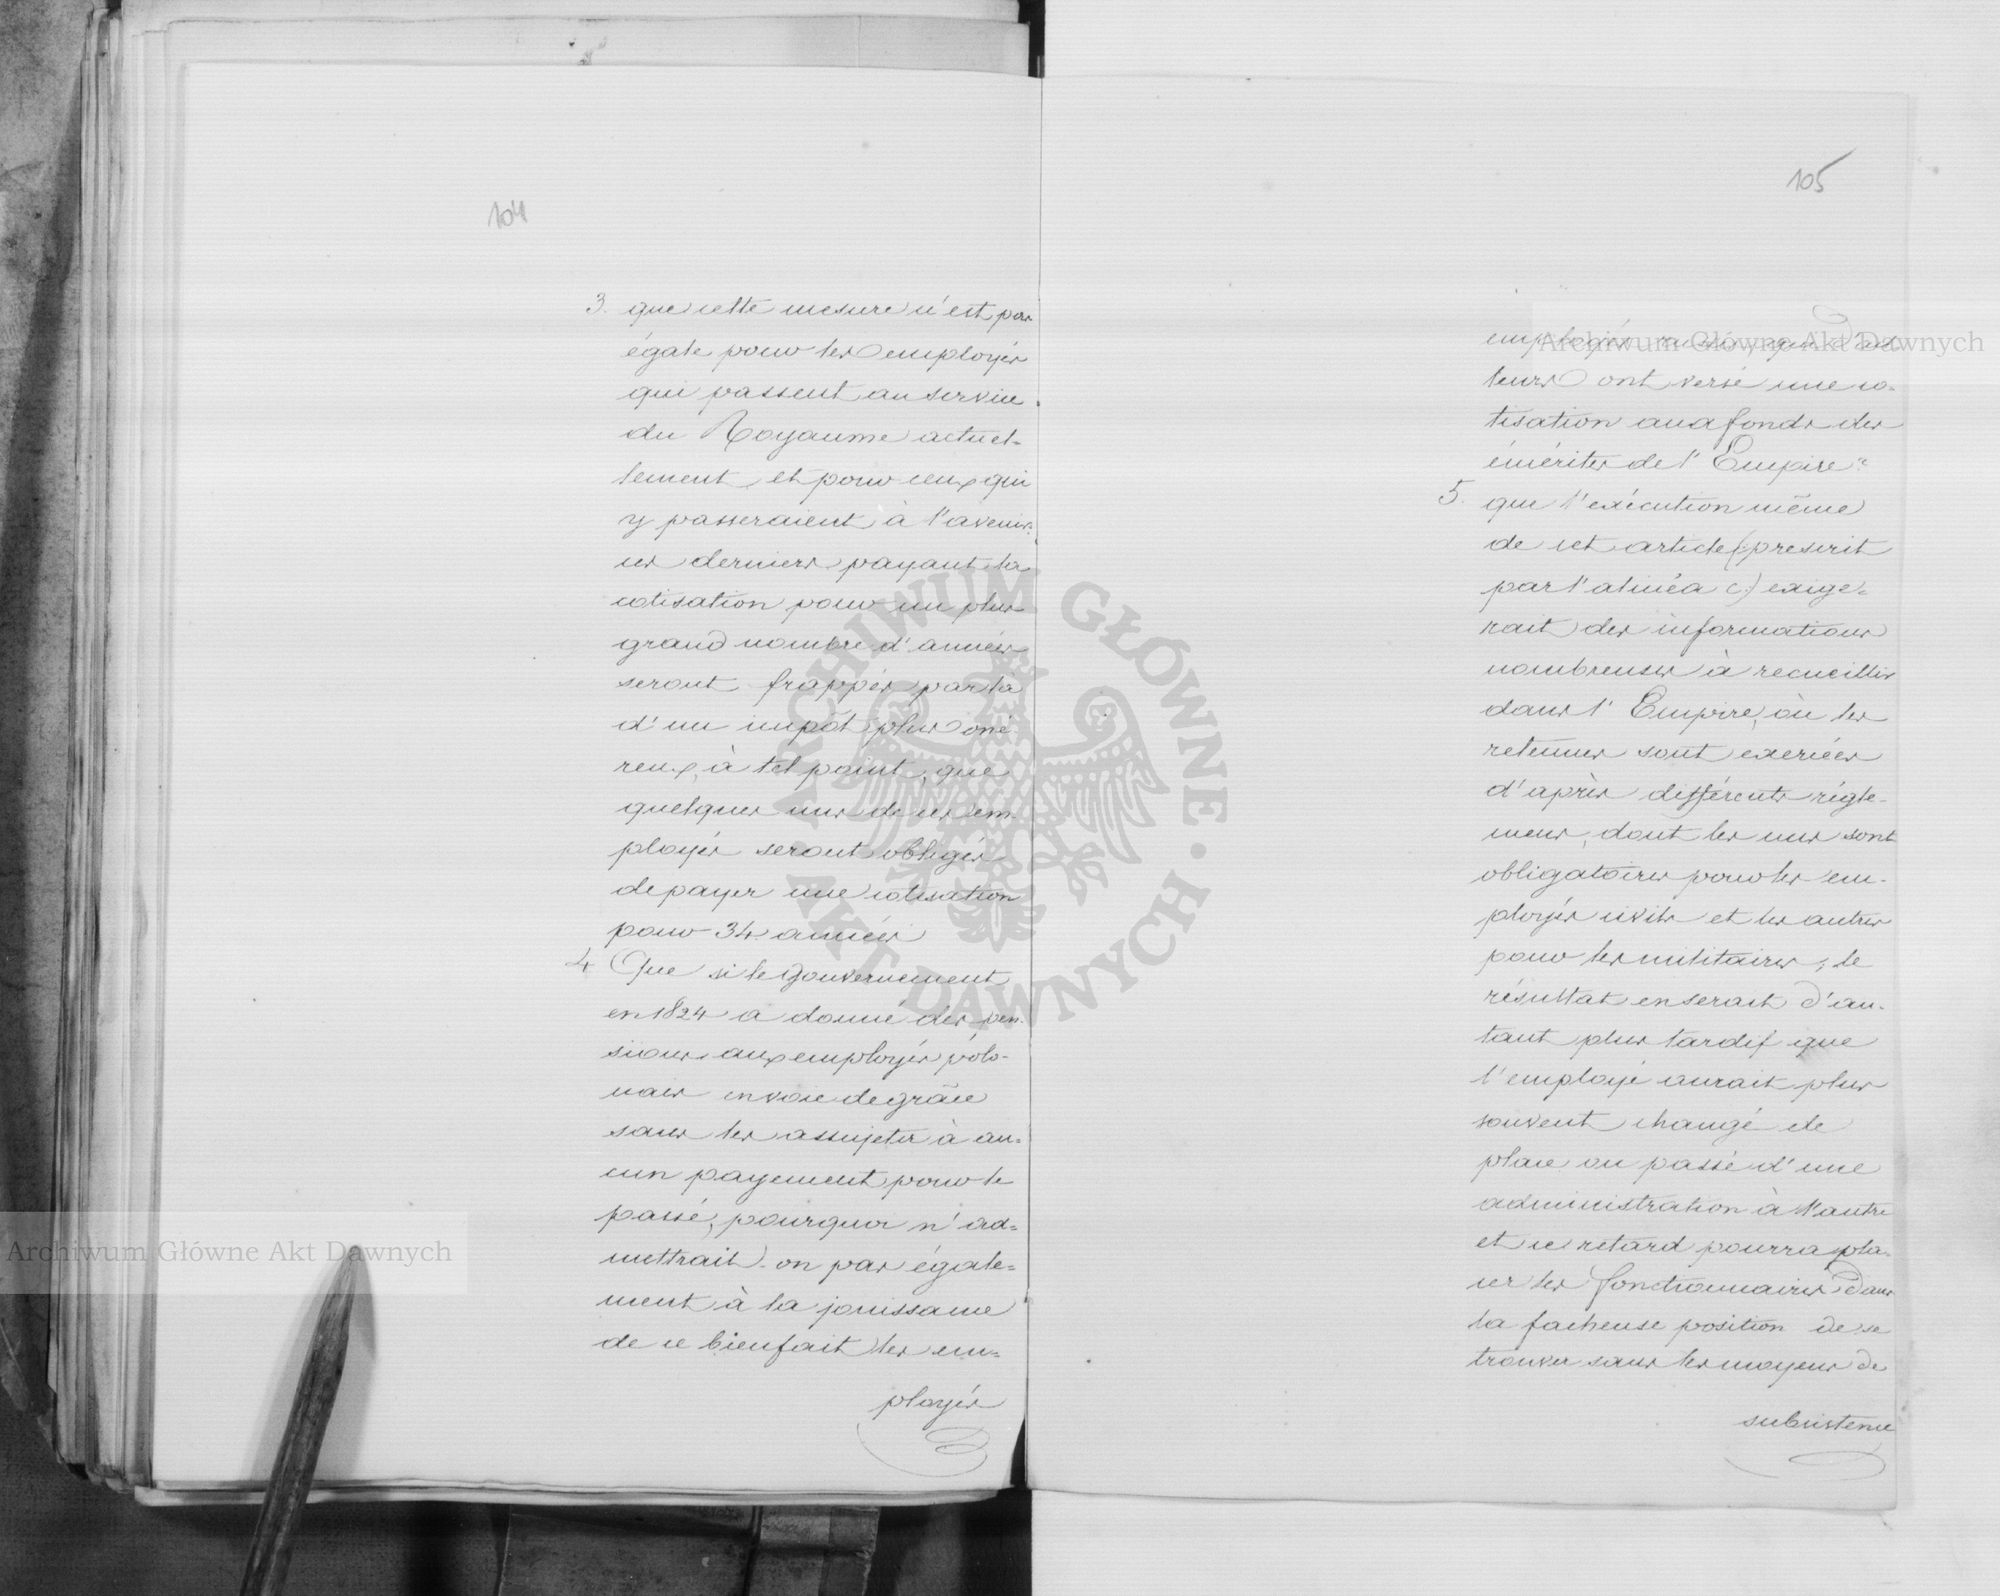 104
3. que cette mesure n'est pas
égale pour les employés
qui passent au service
du Royaume actuel-
lement et pour ceux qui
y passeraient à l'avenir.
ces derniers payant la
cotisation pour un plus
grand nombre d'années
seront frappés par là
d'un impôt plus oné
reux, à tel point, que
quelques uns de ces em-
ployés seront obligés
de payer une cotisation
pour 34 années
4 Que si le gouvernement
en 1824 a donné des pen-
sions aux employés polo-
nais en voie de grâce
sans les assujetir à au-
cun payement pour le
passé, pourquoi n'ad-
mettrait-on pas égale-
ment à la jouissance
de ce bienfait les em-
ployés
105
employés
leurs ont versé une co-
tisation aux fonds des
émérites de l'Empire
5. que l'exécution même
de cet article (prescrit
par l'alinéa c.) exige-
rait des informations
nombreuses à recueillir
dans l'Empire, où les
retenues sont exercées
d'après différents régle-
mens, dont les uns sont
obligatoires pour les em-
ployés civils et les autres
pour les militaires; le
résultat en serait d'au-
tant plus tardif que
l'employé aurait plus
souvent changé de
place ou passé d'une
administration à l'autre
et ce retard pourra pla-
cer les fonctionnaires dans
la facheuse position de se
trouver sans les moyens de
subsistence
ARCHIWUM GŁÓWNE AKT DAWNYCH
Archiwum Główne Akt Dawnych
Archiwum Główne Akt Dawnych